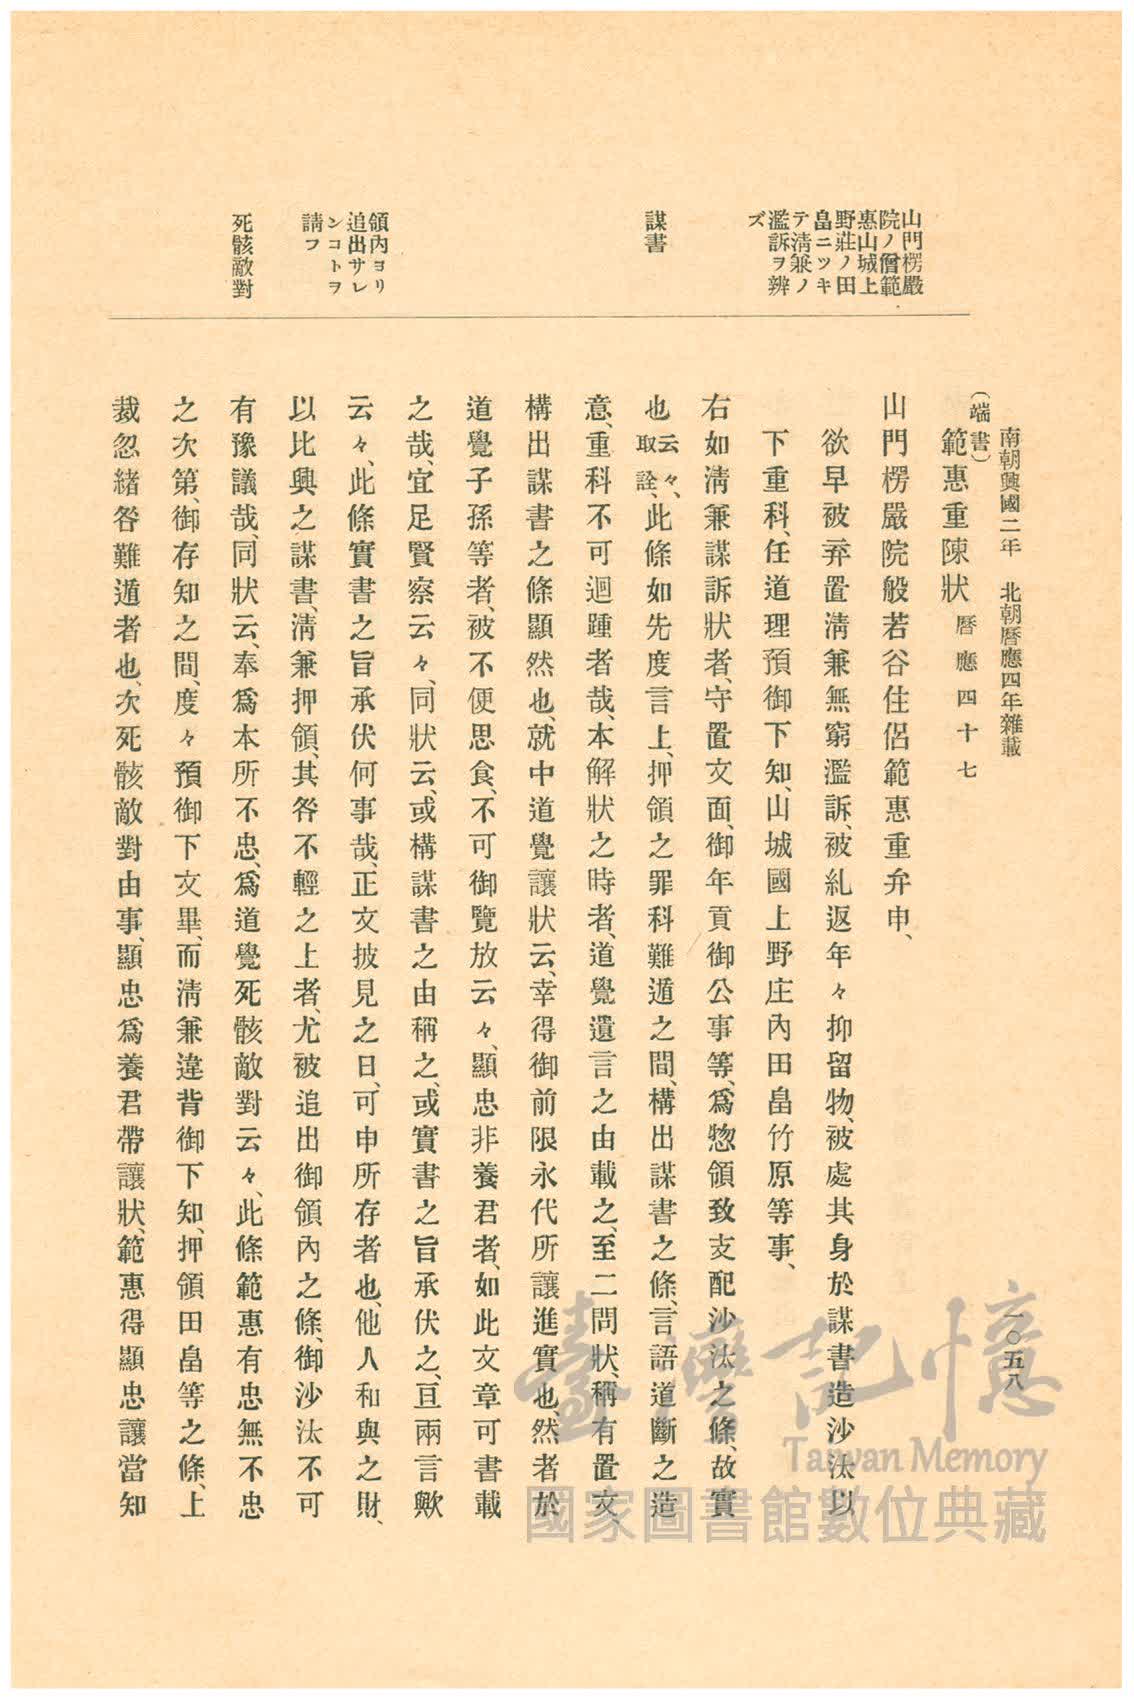 南朝興國二年　北朝曆應四年雜載
一〇五八
山門楞嚴
院ノ僧範
惠山城上
野莊ノ田
畠ニツキ
テ淸兼ノ
濫訴ヲ辨
ズ
謀書
領內ヨリ
追出サレ
ンコトヲ
請フ
死骸敵對
（端書）
範惠重陳狀曆應四十七
山門楞嚴院般若谷住侶範惠重弁申、
欲早被弃置淸兼無窮濫訴、被糺返年々抑留物、被處其身於謀書造沙汰以
下重科、任道理預御下知、山城國上野庄內田畠竹原等事、
右如淸兼謀訴狀者、守置文面、御年貢御公事等、爲惣領致支配沙汰之條、故實
也云々、取詮、此條如先度言上、押領之罪科難遁之間、構出謀書之條、言語道斷之造
意、重科不可迴踵者哉、本解狀之時者、道覺遺言之由載之、至二問狀、稱有置文、
構出謀書之條顯然也、就中道覺讓狀云、幸得御前限永代所讓進實也、然者於
道覺子孫等者、被不便思食、不可御覽放云々、顯忠非養君者、如此文章可書載
之哉、宜足賢察云々、同狀云、或構謀書之由稱之、或實書之旨承伏之、亘兩言歟
云々、此條實書之旨承伏何事哉、正文披見之日、可申所存者也、他人和與之財、
以比興之謀書、淸兼押領、其咎不輕之上者、尤被追出御領內之條、御沙汰不可
有豫議哉、同狀云、奉爲本所不忠、爲道覺死骸敵對云々、此條範惠有忠無不忠
之次第、御存知之間、度々預御下文畢、而淸兼違背御下知、押領田畠等之條、上
裁忽緖咎難遁者也、次死骸敵對由事、顯忠爲養君帶讓狀、範惠得顯忠讓當知
臺灣記憶
Taiwan Memory
國家圖書館數位典藏